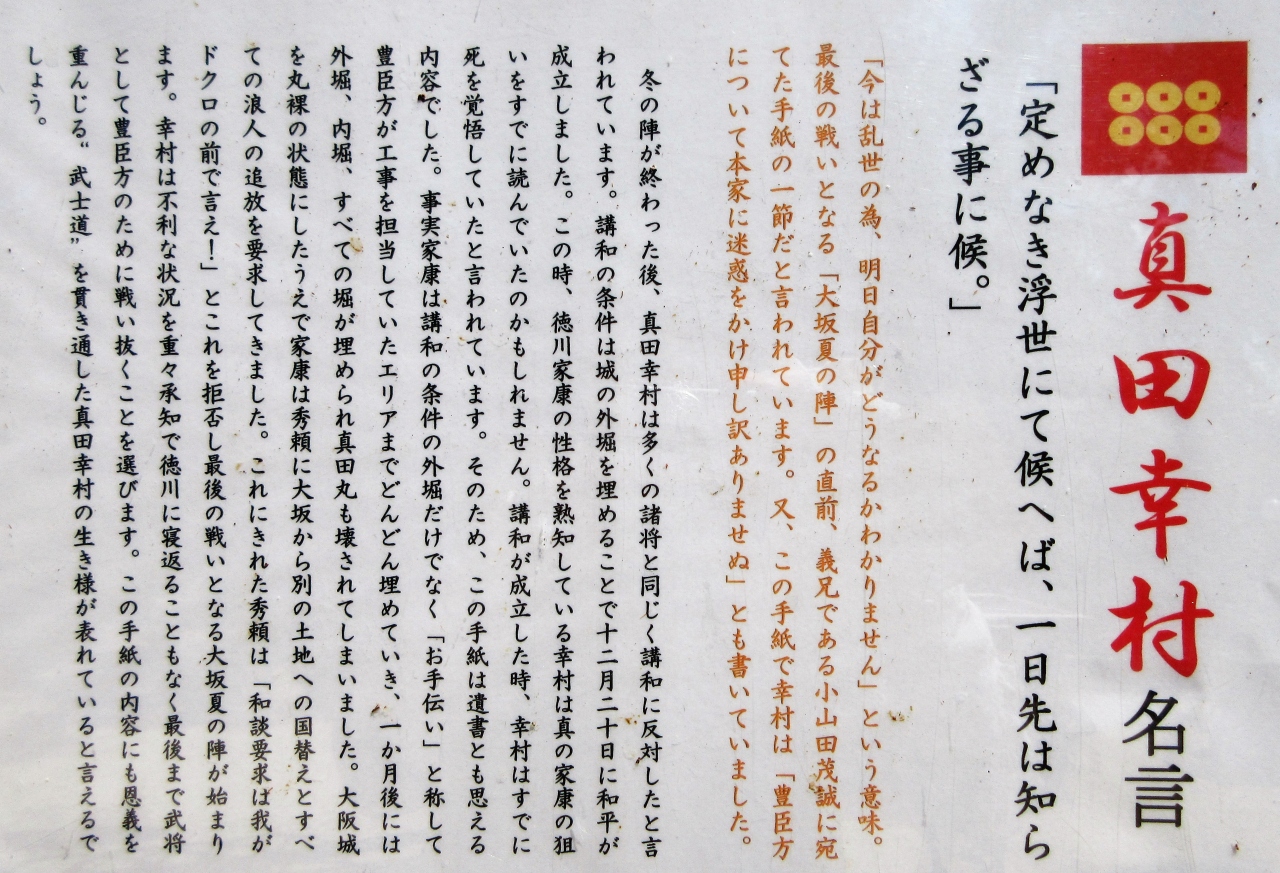 真田幸村名言
「定めなき浮世にて候へば、一日先は知ら
ざる事に候。」
「今は乱世の為、明日自分がどうなるかわかりません」という意味。
最後の戦いとなる「大坂夏の陣」の直前、義兄である小山田茂誠に宛
てた手紙の一節だと言われています。又、この手紙で幸村は「豊臣方
について本家に迷惑をかけ申し訳ありませぬ」とも書いていました。
冬の陣が終わった後、真田幸村は多くの諸将と同じく講和に反対したと言
われています。講和の条件は城の外堀を埋めることで十二月二十日に和平が
成立しました。この時、徳川家康の性格を熟知している幸村は真の家康の狙
いをすでに読んでいたのかもしれません。講和が成立した時、幸村はすでに
死を覚悟していたと言われています。そのため、この手紙は遺書とも思える
内容でした。事実家康は講和の条件の外堀だけでなく「お手伝い」と称して
豊臣方が工事を担当していたエリアまでどんどん埋めていき、一か月後には
外堀、内堀、すべての堀が埋められ真田丸も壊されてしまいました。大阪城
を丸裸の状態にしたうえで家康は秀頼に大坂から別の土地への国替えとすべ
ての浪人の追放を要求してきました。これにきれた秀頼は「和談要求は我が
ドクロの前で言え！」とこれを拒否し最後の戦いとなる大坂夏の陣が始まり
ます。幸村は不利な状況を重々承知で徳川に寝返ることもなく最後まで武将
として豊臣方のために戦い抜くことを選びます。この手紙の内容にも恩義を
重んじる“武士道”を貫き通した真田幸村の生き様が表れていると言えるで
しょう。